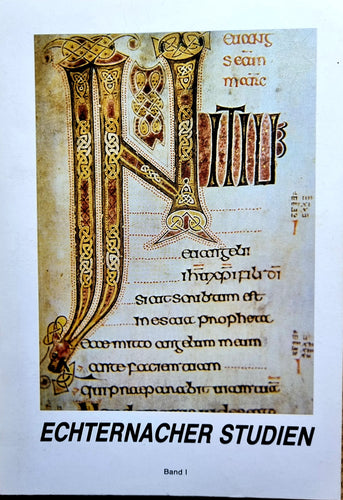 euang
secun
marc
INITIUM
euangelii
ihu xpi fili di
Sicut scribtum est
in esaia propheta
Ecce mitto angelum meum
ante faciem tuam
qui praeparabit uiam tuam
ECHTERNACHER STUDIEN
Band I